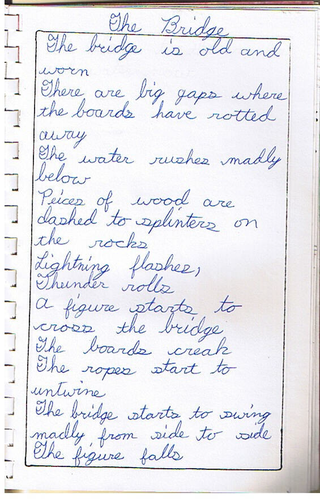 The Bridge
The bridge is old and
worn
There are big gaps where
the boards have rotted
away
The water rushes madly
below
Peices of wood are
dashed to splinters on
the rocks
Lightning flashes,
Thunder rolls
A figure starts to
cross the bridge
The boards creak
The ropes start to
untwine
The bridge starts to swing
madly from side to side
The figure falls